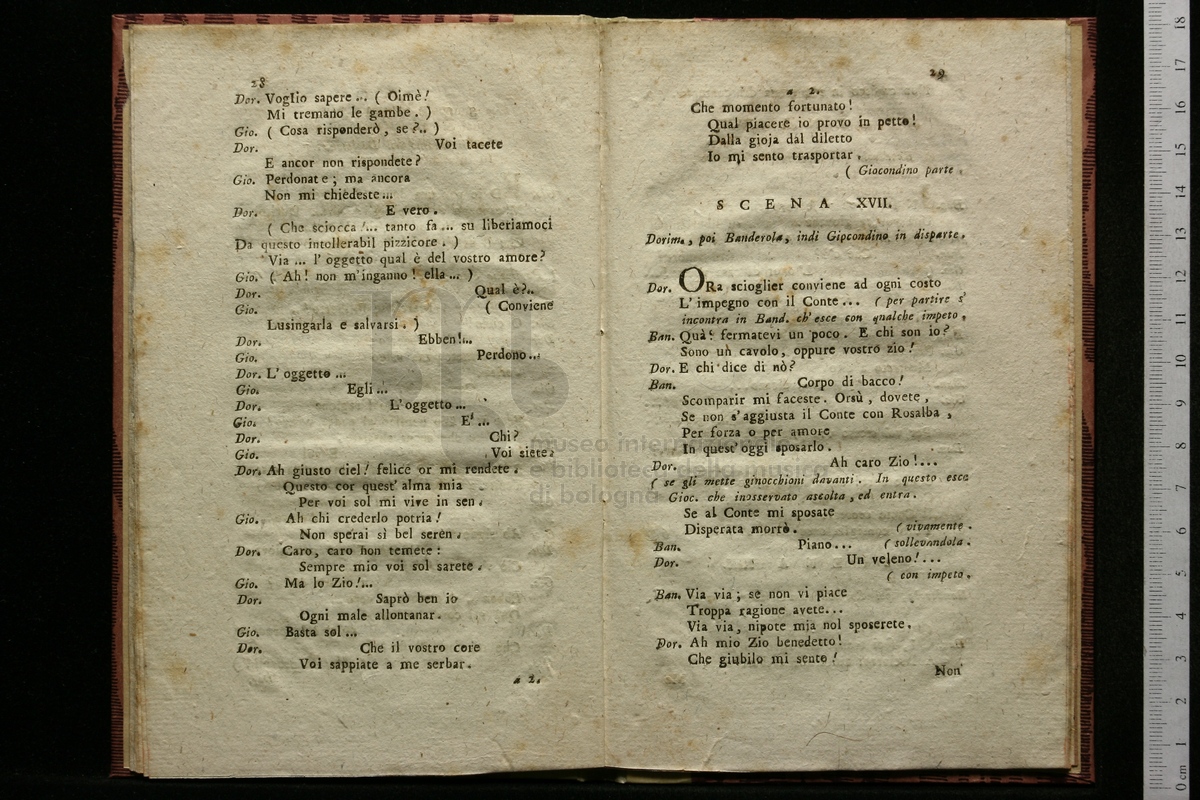 28
Dor. Voglio sapere ... ( Oimè!
Mi tremano le gambe. )
Gio. ( Cosa risponderò, se ?.. )
Dor. Voi tacete
E ancor non rispondete?
Gio. Perdonate; ma ancora
Non mi chiedeste...
Dor. E vero.
( Che sciocca !... tanto fa ... su liberiamoci
Da questo intollerabil pizzicore. )
Via ... l' oggetto qual è del vostro amore?
Gio. ( Ah! non m'inganno! ella ... )
Dor. Qual è?..
Gio. ( Conviene
Lusingarla e salvarsi. )
Dor. Ebben!...
Gio. Perdono...
Dor. L' oggetto ...
Gio. Egli ...
Dor. L' oggetto ...
Gio. E' ...
Dor. Chi?
Gio. Voi siete.
Dor. Ah giusto ciel! felice or mi rendete.
Questo cor quest' alma mia
Per voi sol mi vive in sen.
Gio. Ah chi crederlo potria!
Non sperai sì bel seren.
Dor. Caro, caro non temete:
Sempre mio voi sol sarete.
Gio. Ma lo Zio!...
Dor. Saprò ben io
Ogni male allontanar.
Gio. Basta sol ...
Dor. Che il vostro core
Voi sappiate a me serbar.
a 2.
29
a 2.
Che momento fortunato!
Qual piacere io provo in petto!
Dalla gioja dal diletto
Io mi sento trasportar.
( Giocondino parte.
SCENA XVII.
Dorima, poi Banderola, indi Giocondino in disparte.
Dor. ORa scioglier conviene ad ogni costo
L' impegno con il Conte... ( per partire s'
incontra in Band. ch' esce con qualche impeto.
Ban. Quà! fermatevi un poco. E chi son io?
Sono un cavolo, oppure vostro zio!
Dor. E chi dice di nò?
Ban. Corpo di bacco!
Scomparir mi faceste. Orsù, dovete,
Se non s'aggiusta il Conte con Rosalba,
Per forza o per amore
In quest' oggi sposarlo.
Dor. Ah caro Zio!...
( se gli mette ginocchioni davanti. In questo esce
Gioc. che inosservato ascolta, ed entra.
Se al Conte mi sposate
Disperata morrò. ( vivamente.
Ban. Piano... ( sollevandola.
Dor. Un veleno!...
( con impeto.
Ban. Via via; se non vi piace
Troppa ragione avete...
Via via, nipote mia nol sposerete.
Dor. Ah mio Zio benedetto!
Che giubilo mi sento!
Non
museo internazionale
e biblioteca della musica
di bologna
18
17
16
15
14
13
12
11
10
9
8
7
6
5
4
3
2
1
0 cm